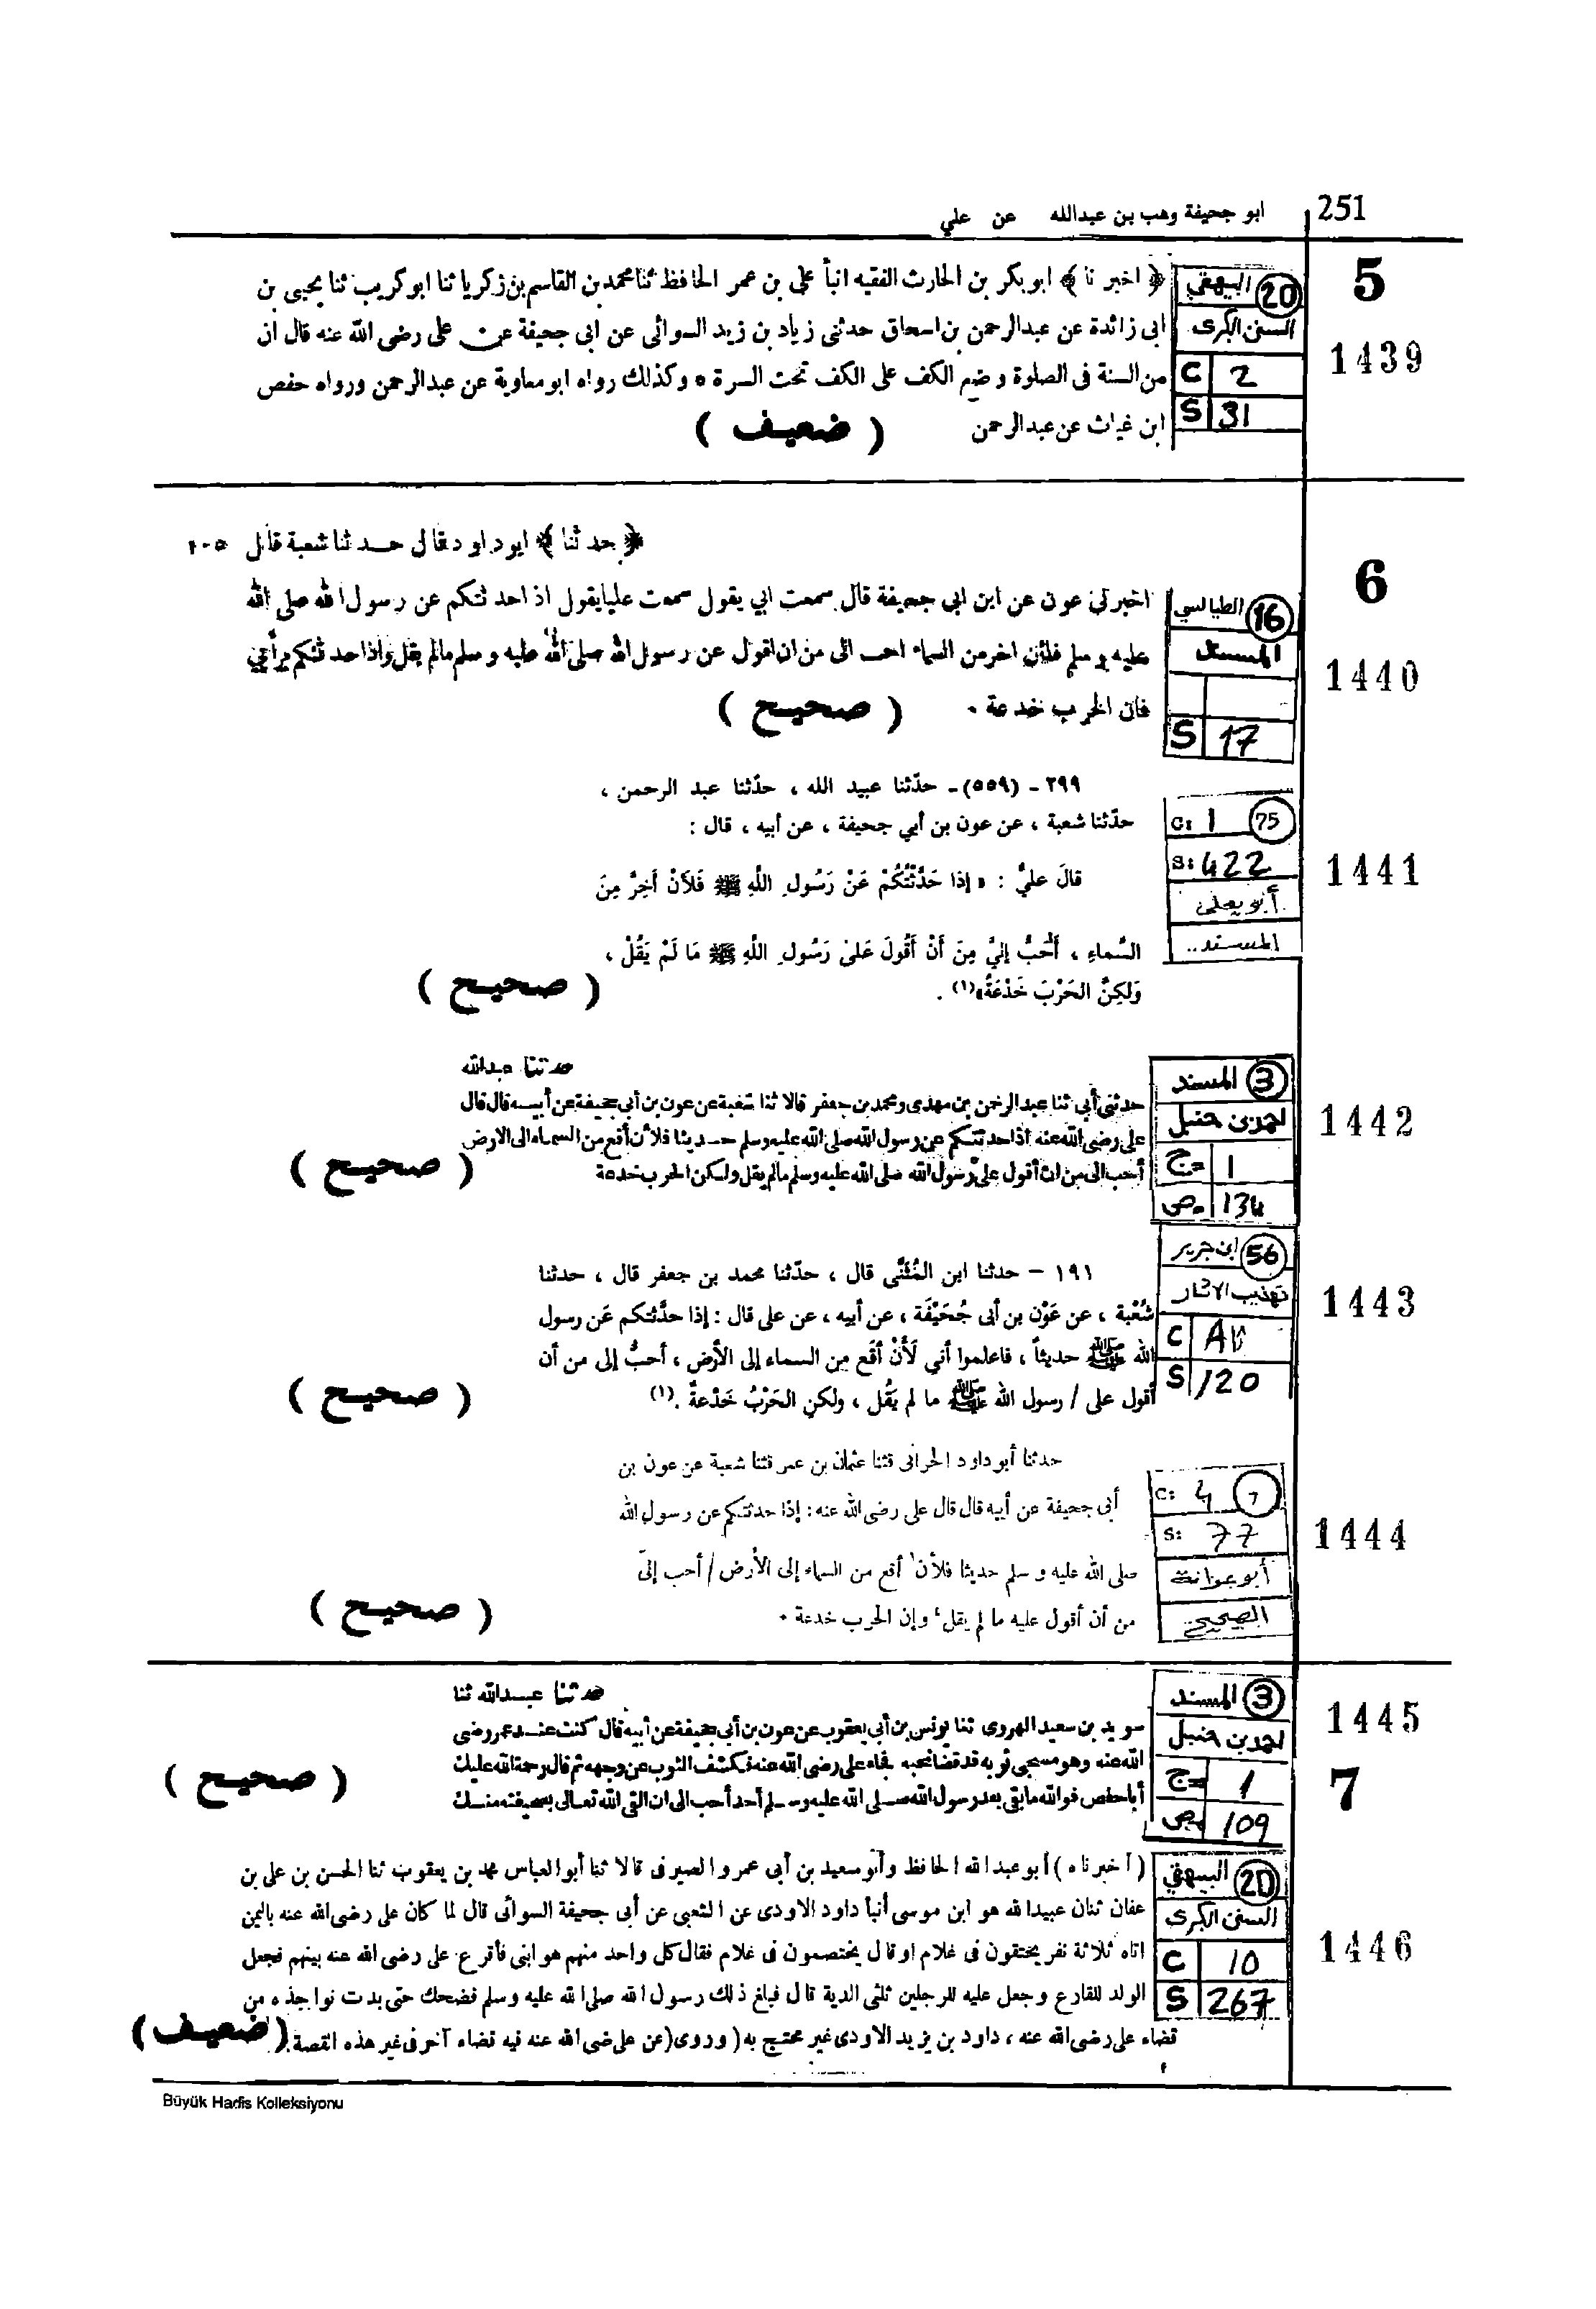 ابو جحيفة وهب بن عبدالله عن علي 251
5
1439
البيهقي 20
السنن الكبرى
C 2
S 31
﴿ اخبرنا ﴾ ابو بكر بن الحارث الفقيه انبأ علي بن عمر الحافظ ثنا محمد بن القاسم بن زكريا ثنا ابو كريب ثنا يحيى بن
ابى زائدة عن عبدالرحمن بن اسحاق حدثنى زياد بن زيد السوائى عن ابى جحيفة عن على رضى الله عنه قال ان
من السنة فى الصلوة وضع الكف على الكف تحت السرة ٥ وكذلك رواه ابو معاوية عن عبدالرحمن ورواه حفص
ابن غياث عن عبدالرحمن ( ضعيف )
6
1440
الطيالسي 16
المسند
S 17
﴿ حدثنا ﴾ ابو داود قال حدثنا شعبة قال
اخبرنى عون عن ابن ابى جحيفة قال سمعت ابي يقول سمعت عليا يقول اذا حدثتكم عن رسول الله صلى الله
عليه وسلم فلئن اخر من السماء احب الى من ان اقول عن رسول الله صلى الله عليه وسلم مالم يقل واذا حدثتكم برأيي
فان الحرب خدعة . ( صحيح )
1441
C: 1 75
S: 422
أبو يعلى
المسند..
٢٩٩ - (٥٥٩) - حدّثنا عبيد الله ، حدّثنا عبد الرحمن ،
حدّثنا شعبة ، عن عون بن أبي جحيفة ، عن أبيه ، قال :
قالَ عليٌّ : « إذا حَدَّثْتُكُمْ عَنْ رَسُولِ اللَّهِ ﷺ فَلَأَنْ أَخِرَّ مِنَ
السَّماءِ ، أَحَبُّ إليَّ مِنَ أَنْ أَقُولَ عَلىٰ رَسُولِ اللَّهِ ﷺ مَا لَمْ يَقُلْ ،
وَلكِنَّ الحَرْبَ خَدْعَةٌ»(١) . ( صحيح )
1442
المسند 3
احمد بن حنبل
ج= 1
ص= 134
حدثنا عبدالله
حدثنى أبى ثنا عبد الرحمن بن مهدى ومحمد بن جعفر قالا ثنا شعبة عن عون بن أبى جحيفة عن أبيه قال قال
على رضى الله عنه اذا حدثتكم عن رسول الله صلى الله عليه وسلم حديثا فلأن أقع من السماء الى الارض
أحب الى من ان أقول على رسول الله صلى الله عليه وسلم مالم يقل ولكن الحرب خدعة ( صحيح )
1443
ابن جرير 56
تهذيب الاثار
C
S 120
١٩١ - حدثنا ابن المُثَنَّى قال ، حدّثنا محمد بن جعفر قال ، حدثنا
شُعْبة ، عن عَوْن بن أبى جُحَيْفَة ، عن أبيه ، عن على قال : إذا حدَّثتكم عَن رسول
الله ﷺ حديثاً ، فاعلموا أني لَأَنْ أَقَع مِن السماء إلى الأرض ، أحبُّ إلى من أن
أقول على / رسول الله ﷺ ما لم يَقُل ، ولكنِ الحَرْبُ خَدْعةٌ .(١) ( صحيح )
1444
C: 4 7
S: 77
أبو عوانة
الصحيح
حدثنا أبو داود الحرانى قثنا عثمان بن عمر قثنا شعبة عن عون بن
أبى جحيفة عن أبيه قال قال على رضى الله عنه : إذا حدثتكم عن رسول الله
صلى الله عليه وسلم حديثا فلأن أقع من السماء إلى الأرض / أحب إلىّ
من أن أقول عليه ما لم يقل وإن الحرب خدعة . ( صحيح )
1445
7
المسند 3
احمد بن حنبل
ج= 1
ص= 109
حدثنا عبدالله ثنا
سويد بن سعيد الهروى ثنا يونس بن أبى يعقوب عن عون بن أبى جحيفة عن أبيه قال كنت عند عمر رضى
الله عنه وهو مسجى ثوبه قد قضا نحبه فجاء على رضى الله عنه فكشف الثوب عن وجهه ثم قال رحمة الله عليك
أبا حفص فوالله ما بقى بعد رسول الله صلى الله عليه وسلم أحد أحب الى ان القى الله تعالى بصحيفته منك ( صحيح )
1446
البيهقي 20
السنن الكبرى
C 10
S 267
( أخبرناه ) أبو عبد الله الحافظ وأبو سعيد بن أبى عمرو الصيرفى قالا ثنا أبو العباس محمد بن يعقوب ثنا الحسن بن على بن
عفان ثنا عبيدالله هو ابن موسى أنبأ داود الاودى عن الشعبى عن أبى جحيفة السوائى قال لما كان على رضى الله عنه باليمن
اتاه ثلاثة نفر يختقون فى غلام او قال يختصمون فى غلام فقال كل واحد منهم هو ابنى فأقرع على رضى الله عنه بينهم فجعل
الولد للقارع وجعل عليه للرجلين ثلثى الدية قال فبلغ ذلك رسول الله صلى الله عليه وسلم فضحك حتى بدت نواجذه من
قضاء على رضى الله عنه ، داود بن يزيد الاودى غير محتج به ( وروى ( عن على رضى الله عنه فيه قضاء آخر فى غير هذه القصة . ( ضعيف )
Büyük Hadis Kolleksiyonu